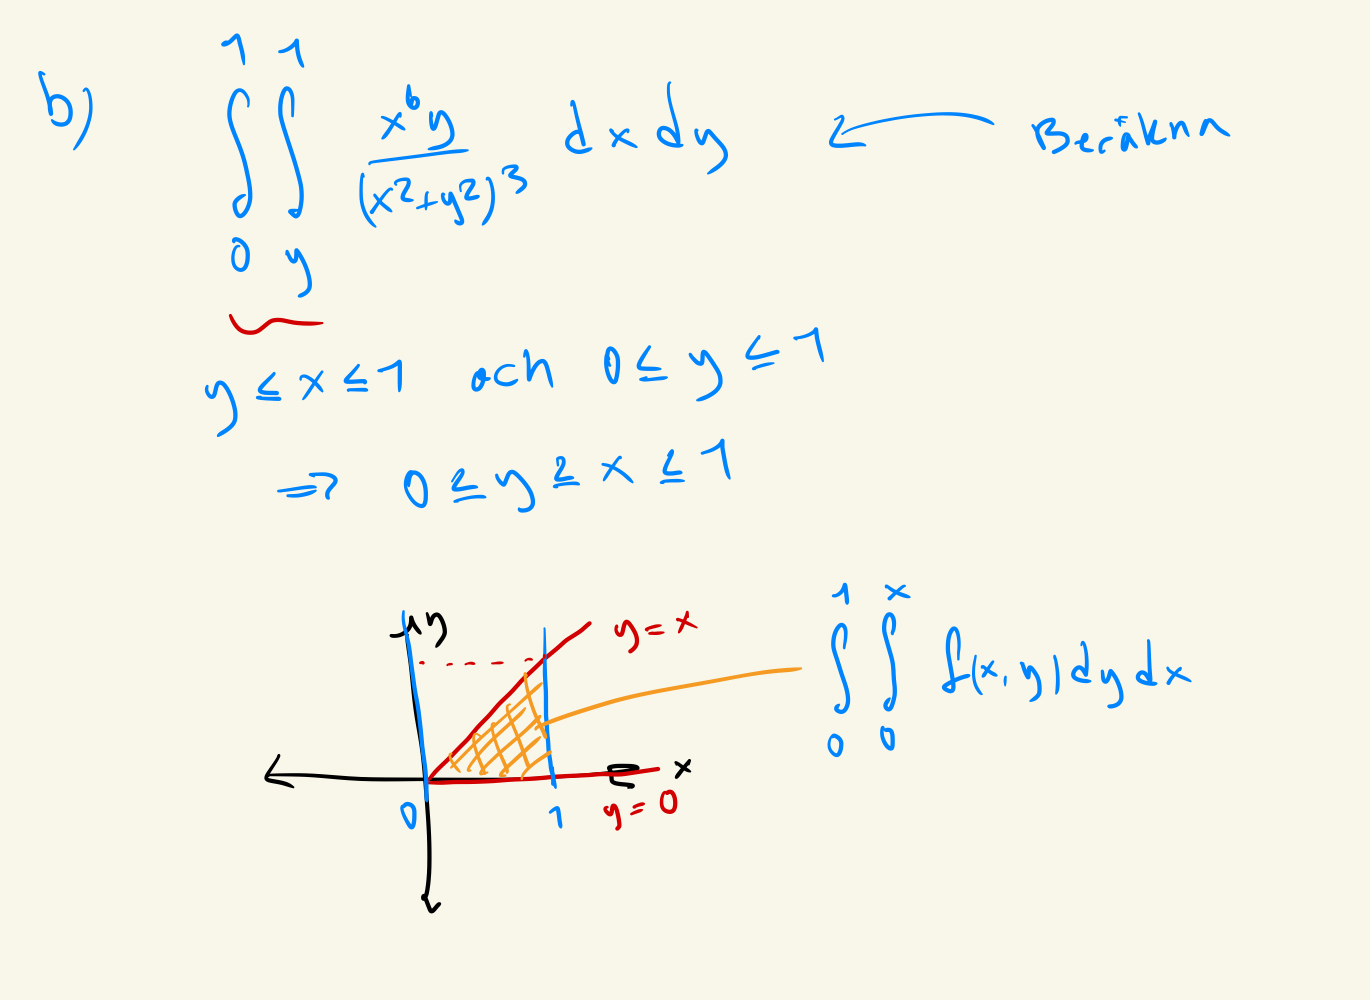 b) ∫₀¹ ∫_y¹ x⁶y / (x²+y²)³ dx dy ← Beräkna
y ≤ x ≤ 1 och 0 ≤ y ≤ 1
⇒ 0 ≤ y ≤ x ≤ 1
y
y = x
∫₀¹ ∫₀ˣ f(x,y) dy dx
x
0 1 y = 0